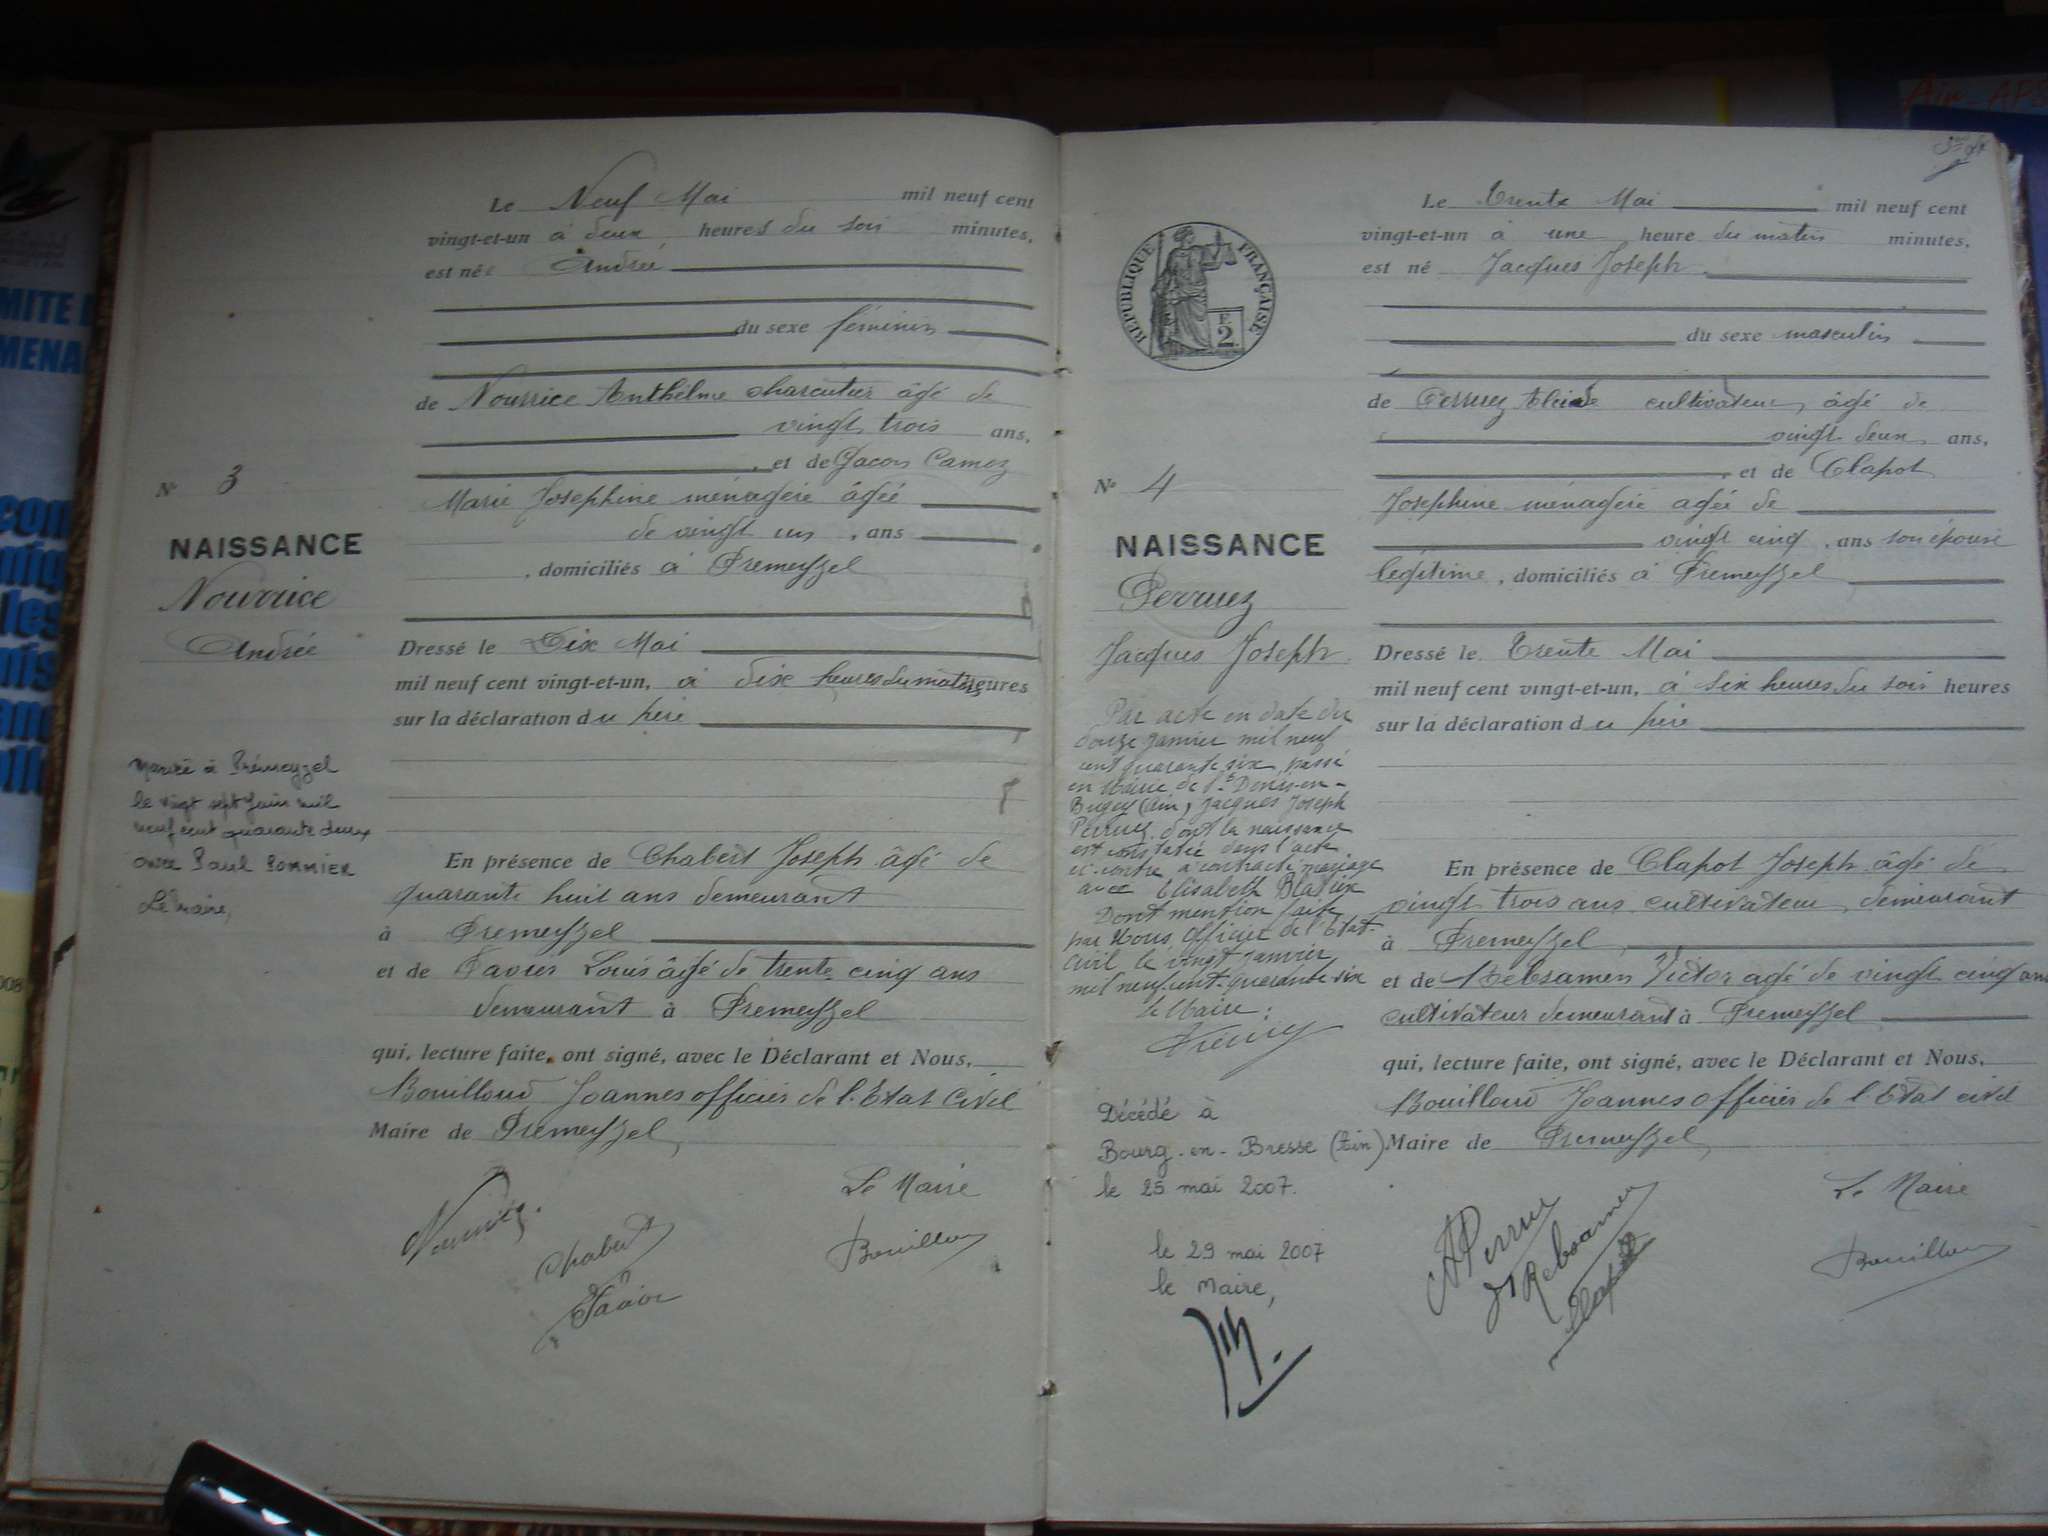 Le Neuf Mai mil neuf cent
vingt-et-un à deux heures du soir minutes,
est née Andrée
du sexe féminin
de Nourrice Anthélme charcutier âgé de
vingt trois ans,
et de Jacon Camoz
Marie Josephine ménagère âgée
de vingt un, ans
, domiciliés à Premeyzel
N° 3
NAISSANCE
Nourrice
Andrée
Dressé le Dix Mai
mil neuf cent vingt-et-un, à dix heures du matin heures
sur la déclaration du père
Mariée à Prémeyzel
le vingt sept Juin mil
neuf cent quarante deux
avec Paul
Le Maire,
En présence de Chabert Joseph âgé de
quarante huit ans demeurant
à Premeyzel
et de Pavier Louis âgé de trente cinq ans
demeurant à Premeyzel
qui, lecture faite, ont signé, avec le Déclarant et Nous,
Bouilloud Joannes officier de l'Etat Civil
Maire de Premeyzel,
Le Maire
Chabert
Bouilloud
Le Trente Mai mil neuf cent
vingt-et-un à une heure du matin minutes,
est né Jacques Joseph
RÉPUBLIQUE FRANÇAISE
2
du sexe masculin
de Perruez Alcide cultivateur, âgé de
vingt deux, ans,
, et de Clapot
Josephine ménagère agée de
vingt cinq, ans son épouse
légitime, domiciliés à Premeyzel
N° 4
NAISSANCE
Perruez
Jacques Joseph
Dressé le Trente Mai
mil neuf cent vingt-et-un, à six heures du soir heures
sur la déclaration du père
Par acte en date du
douze janvier mil neuf
cent quarante six, passé
en Mairie de St Denis-en-
Bugey (Ain) Jacques Joseph
Perruez dont la naissance
est constatée dans l'acte
ci-contre a contracté mariage
avec Elisabeth
Dont mention faite
par Nous, Officier de l'Etat-
Civil le vingt janvier
mil neuf cent quarante six
le Maire :
En présence de Clapot Joseph âgé de
vingt trois ans cultivateur, demeurant
à Premeyzel,
et de Rebsamen Victor agé de vingt cinq ans
cultivateur demeurant à Premeyzel
qui, lecture faite, ont signé, avec le Déclarant et Nous,
Bouilloud Joannes officier de l'Etat civil
Maire de Premeyzel,
Décédé à
Bourg-en-Bresse (Ain)
le 25 mai 2007.
le 29 mai 2007
le Maire,
Le Maire
A Perruez
Rebsamen
Clapot
Bouilloud